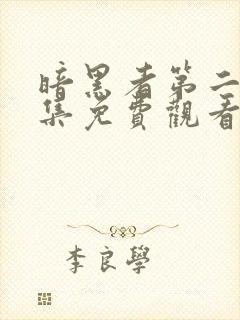 暗黑者第二
集免費觀看
李良學